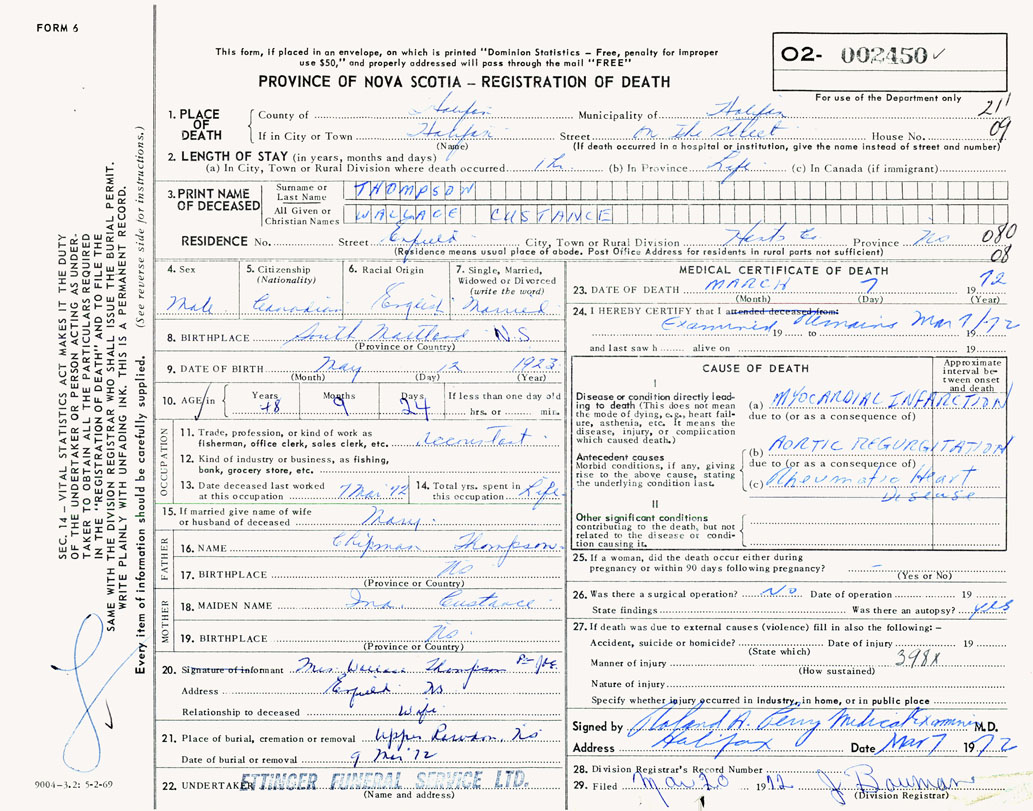 FORM 6
This form, if placed in an envelope, on which is printed "Dominion Statistics – Free, penalty for improper
use $50," and properly addressed will pass through the mail "FREE"
PROVINCE OF NOVA SCOTIA – REGISTRATION OF DEATH
O2- 002450 ✓
For use of the Department only
1. PLACE OF DEATH
County of Halifax Municipality of Halifax 21'
If in City or Town Halifax Street on the street House No. 09
(Name) (If death occurred in a hospital or institution, give the name instead of street and number)
2. LENGTH OF STAY (in years, months and days)
(a) In City, Town or Rural Division where death occurred 1 h (b) In Province Life (c) In Canada (if immigrant)
3. PRINT NAME OF DECEASED
Surname or Last Name THOMPSON
All Given or Christian Names WALLACE CUSTANCE
RESIDENCE No. Street Enfield City, Town or Rural Division Hants Co Province NS 080
(Residence means usual place of abode. Post Office Address for residents in rural parts not sufficient) 08
4. Sex Male
5. Citizenship (Nationality) Canadian
6. Racial Origin English
7. Single, Married, Widowed or Divorced (write the word) Married
8. BIRTHPLACE South Maitland N.S.
(Province or Country)
9. DATE OF BIRTH May 12 1923
(Month) (Day) (Year)
10. AGE in Years 48 Months 9 Days 24 If less than one day old
hrs. or min.
OCCUPATION
11. Trade, profession, or kind of work as
fisherman, office clerk, sales clerk, etc. Accountant
12. Kind of industry or business, as fishing,
bank, grocery store, etc.
13. Date deceased last worked
at this occupation 7 Mar '72
14. Total yrs. spent in
this occupation Life
15. If married give name of wife
or husband of deceased Mary
FATHER
16. NAME Chipman Thompson
17. BIRTHPLACE NS
(Province or Country)
MOTHER
18. MAIDEN NAME Ina Custance
19. BIRTHPLACE NS
(Province or Country)
20. Signature of informant Mrs. Wallace Thompson
Address Enfield NS
Relationship to deceased Wife
21. Place of burial, cremation or removal Upper Rawdon, NS
Date of burial or removal 9 Mar '72
22. UNDERTAKER ETTINGER FUNERAL SERVICE LTD.
(Name and address)
MEDICAL CERTIFICATE OF DEATH
23. DATE OF DEATH MARCH 7 1972
(Month) (Day) (Year)
24. I HEREBY CERTIFY that I attended deceased from:
Examined Remains Mar 7/72
19 19
and last saw h alive on 19
CAUSE OF DEATH
Approximate interval between onset and death
I
Disease or condition directly leading
to death (This does not
mean the mode of dying, e.g., heart failure,
asthenia, etc. It means the
disease, injury, or complication
which caused death.)
(a) MYOCARDIAL INFARCTION
due to (or as a consequence of)
Antecedent causes
Morbid conditions, if any, giving
rise to the above cause, stating
the underlying condition last.
(b) AORTIC REGURGITATION
due to (or as a consequence of)
(c) Rheumatic Heart
Disease
II
Other significant conditions
contributing to the death, but not
related to the disease or condition
causing it.
25. If a woman, did the death occur either during
pregnancy or within 90 days following pregnancy? –
(Yes or No)
26. Was there a surgical operation? No Date of operation 19
State findings Was there an autopsy? yes
27. If death was due to external causes (violence) fill in also the following: –
Accident, suicide or homicide? Date of injury 19
(State which)
Manner of injury 398X
(How sustained)
Nature of injury
Specify whether injury occurred in industry, in home, or in public place
Signed by Roland A. Perry Medical Examiner M.D.
Address Halifax Date Mar 7 1972
28. Division Registrar's Record Number
29. Filed Mar 20 1972 J. Bauman
(Division Registrar)
SEC. 14 – VITAL STATISTICS ACT MAKES IT THE DUTY
OF THE UNDERTAKER OR PERSON ACTING AS UNDERTAKER
TO OBTAIN ALL THE PARTICULARS REQUIRED
IN THE "REGISTRATION OF DEATH" AND TO FILE THE
SAME WITH THE DIVISION REGISTRAR WHO SHALL ISSUE THE BURIAL PERMIT.
WRITE PLAINLY WITH UNFADING INK. THIS IS A PERMANENT RECORD.
Every item of information should be carefully supplied. (See reverse side for instructions.)
9004–3.2: 5-2-69